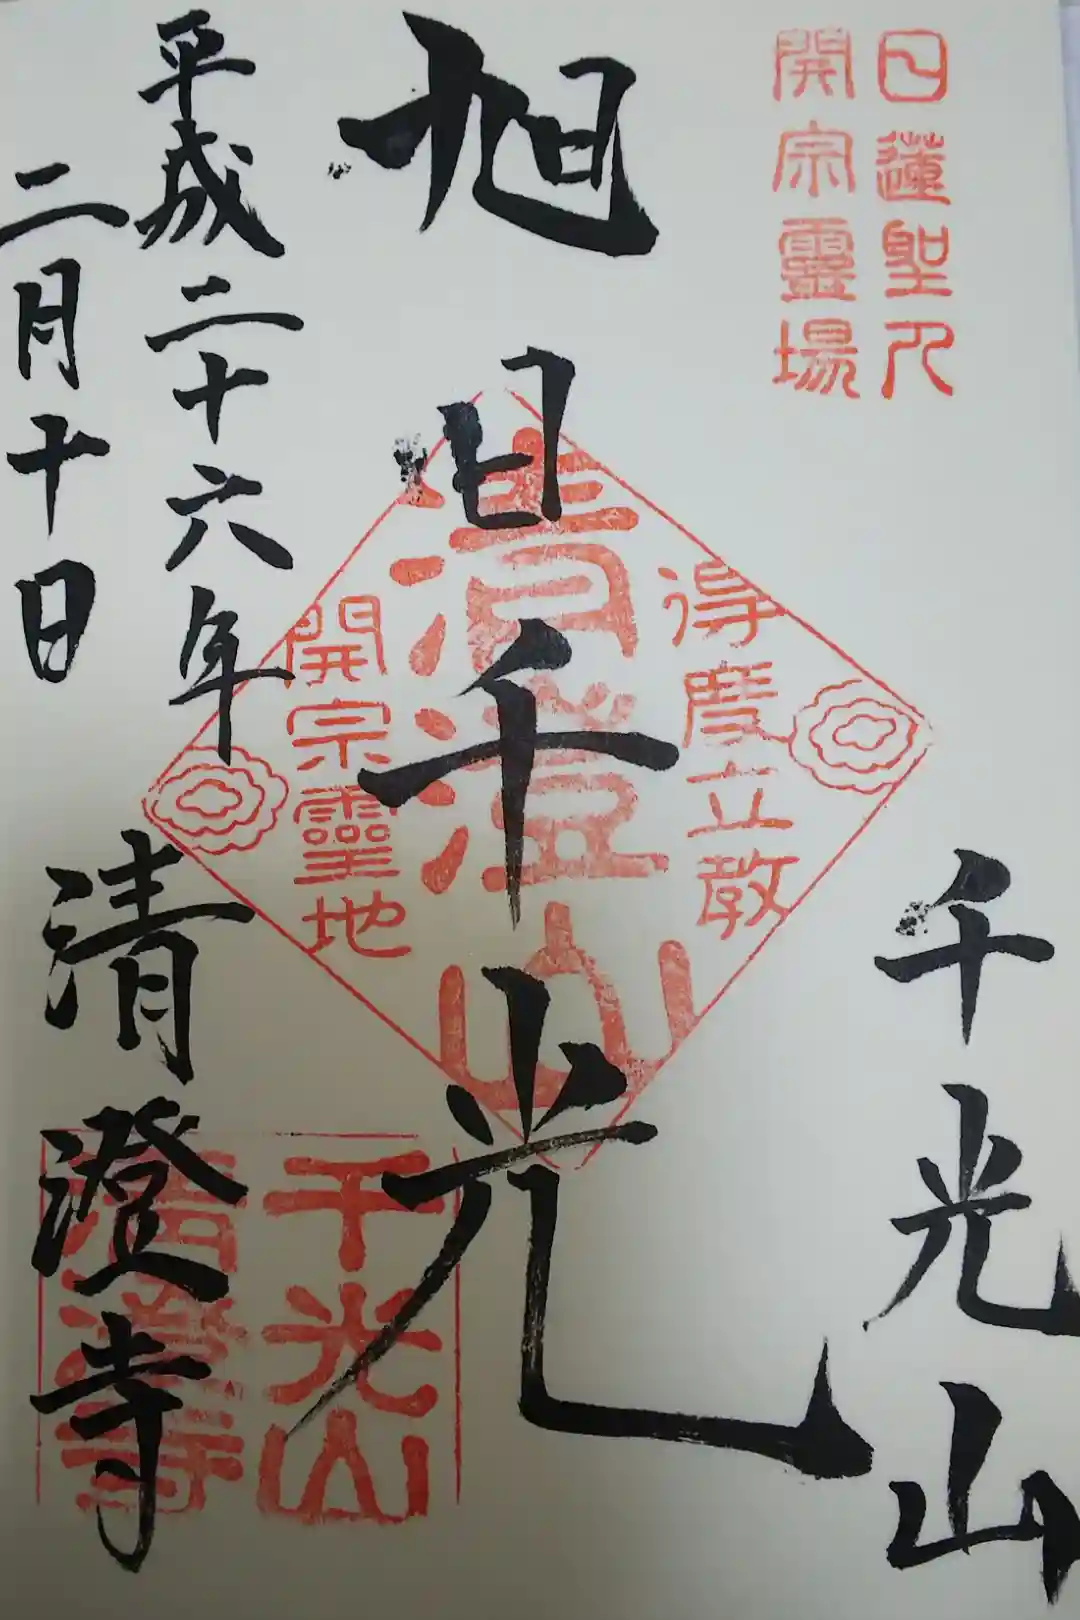 日蓮聖人
開宗靈場
千光山
旭日千光
得度立教
清澄山
開宗靈地
平成二十六年
二月十日
清澄寺
千光山
清澄寺